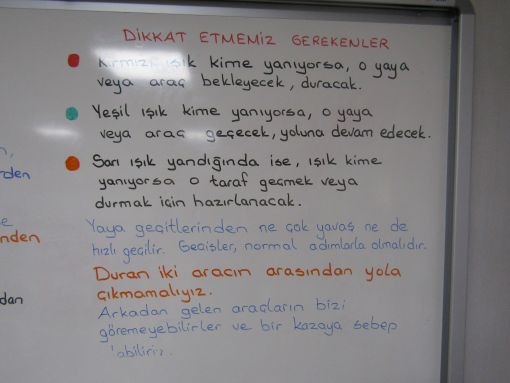 DİKKAT ETMEMİZ GEREKENLER
Kırmızı ışık kime yanıyorsa, o yaya
veya araç bekleyecek, duracak.
Yeşil ışık kime yanıyorsa, o yaya
veya araç geçecek, yoluna devam edecek.
Sarı ışık yandığında ise, ışık kime
yanıyorsa o taraf geçmek veya
durmak için hazırlanacak.
Yaya geçitlerinden ne çok yavaş ne de
hızlı geçilir. Geçişler, normal adımlarla olmalıdır.
Duran iki aracın arasından yola
çıkmamalıyız.
Arkadan gelen araçların bizi
göremeyebilirler ve bir kazaya sebep
olabiliriz.